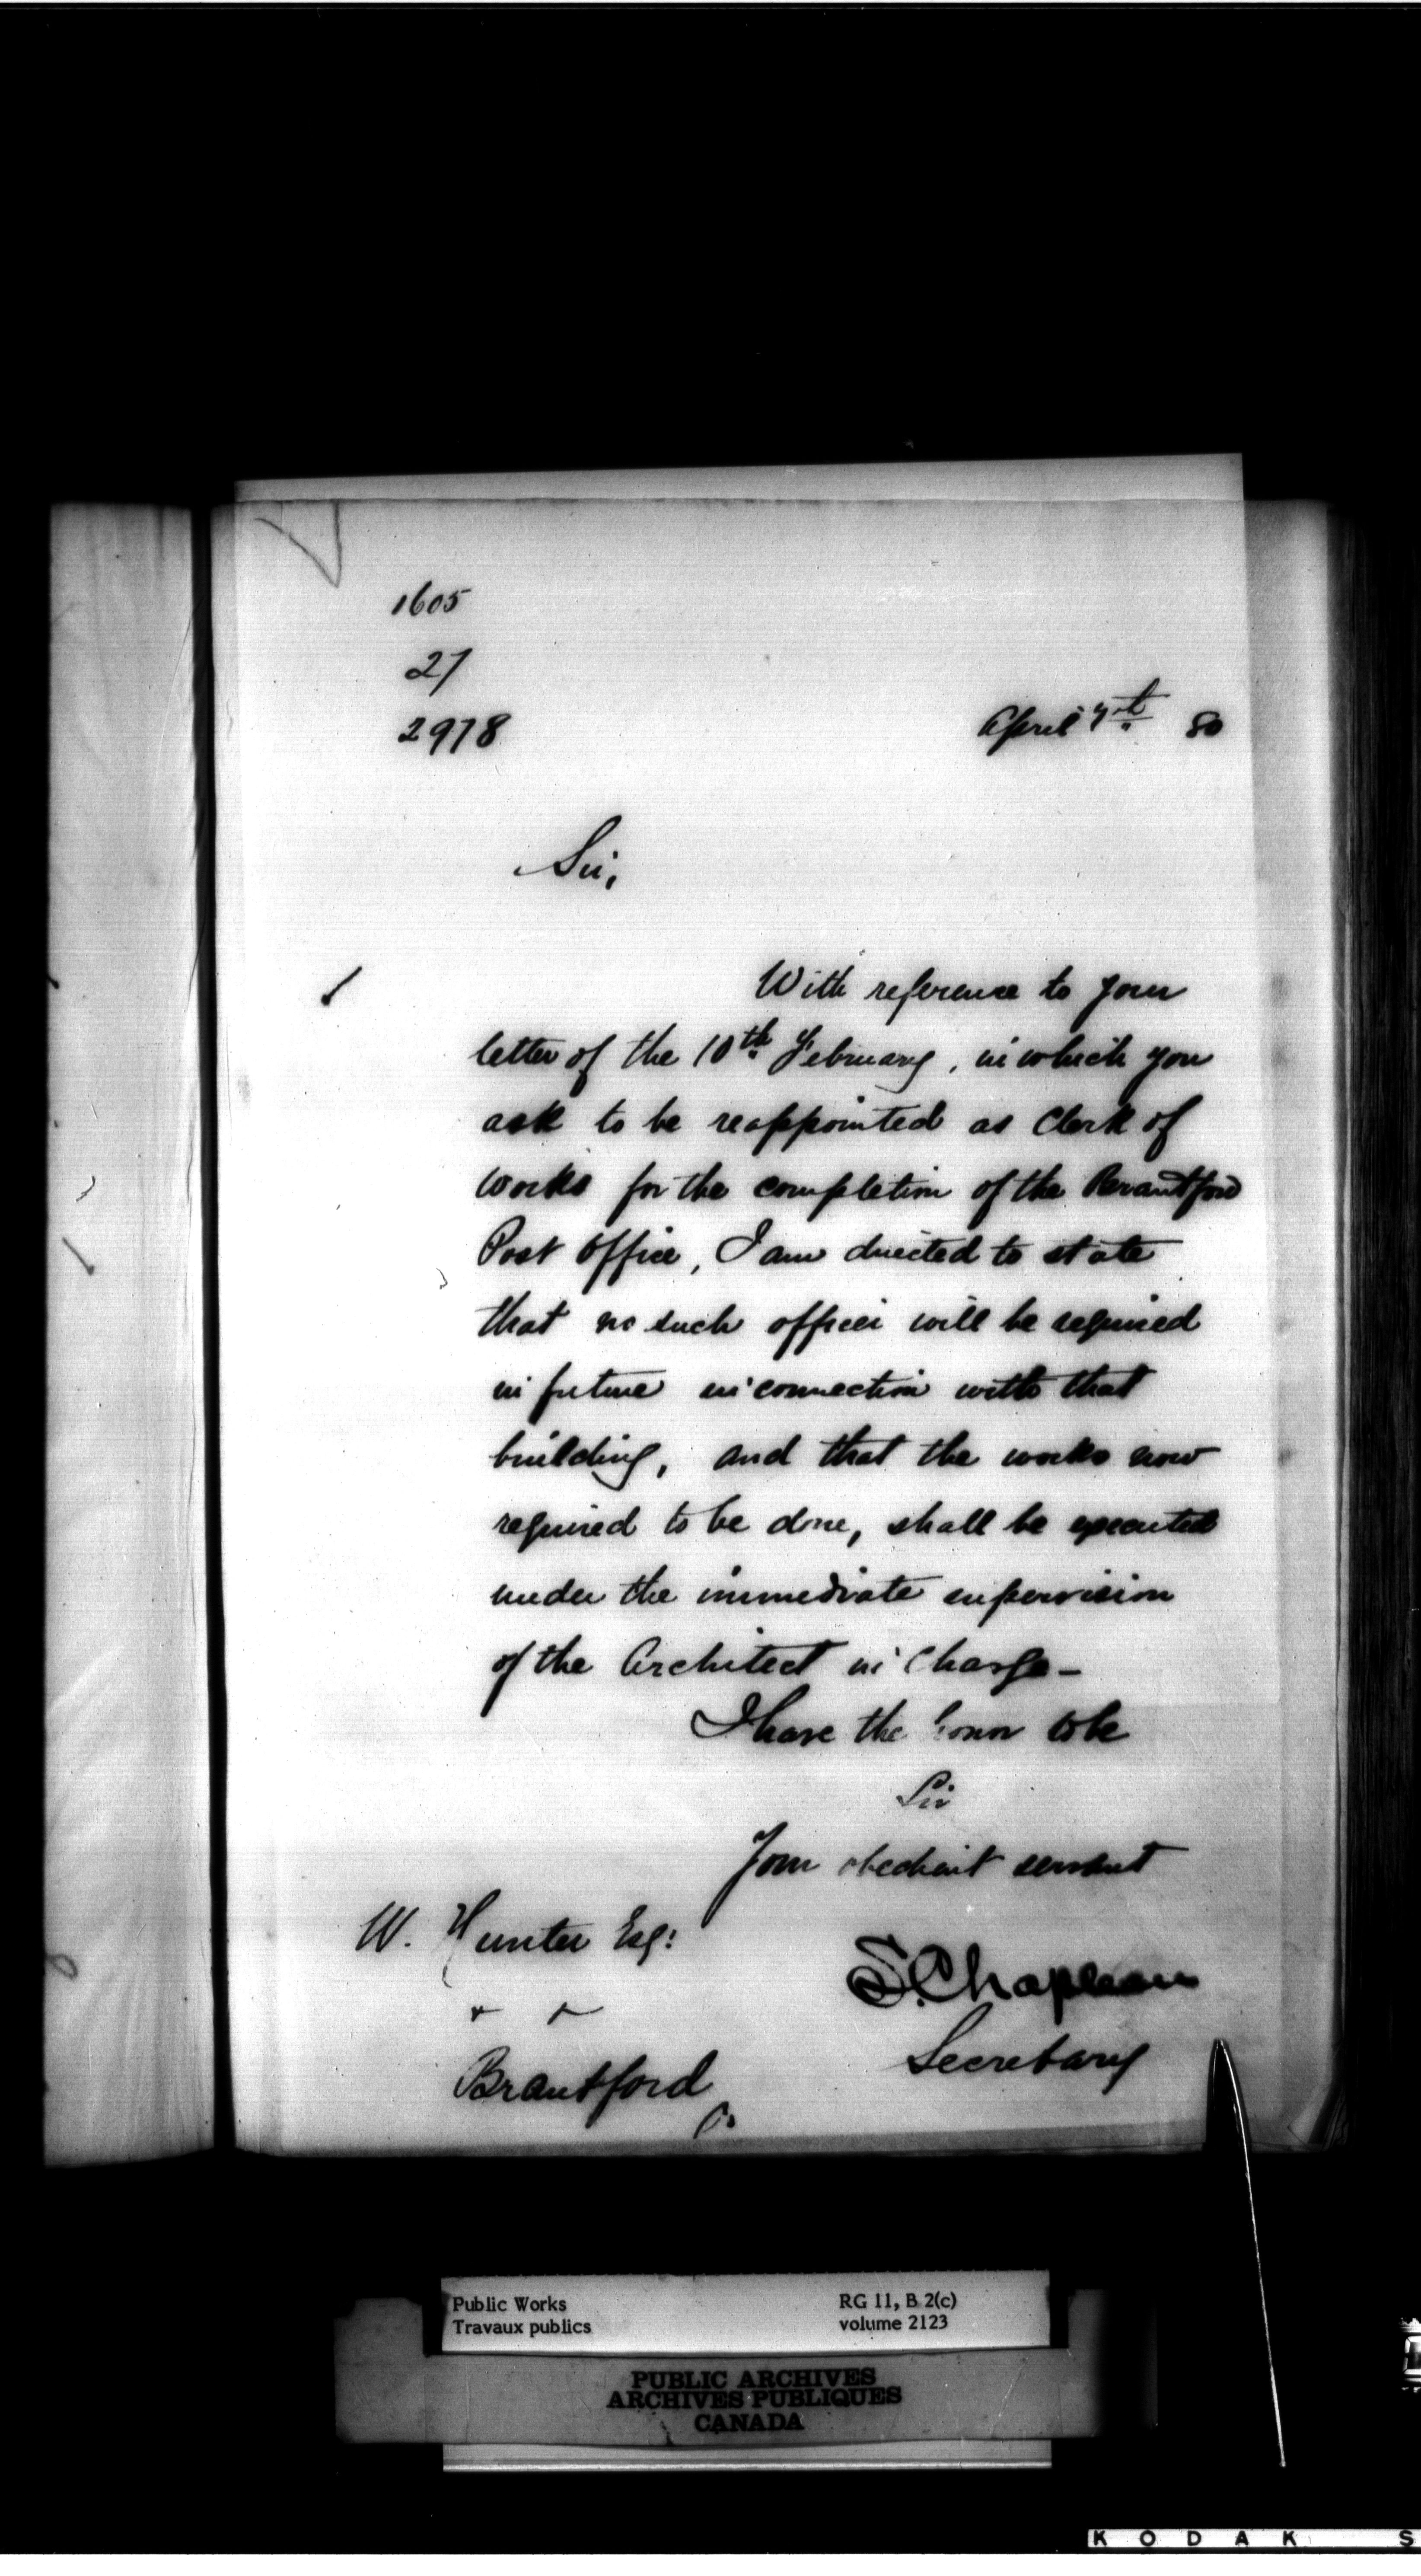 1605
27
2978
April 7th 80
Sir,
With reference to your
letter of the 10th February, in which you
ask to be reappointed as Clerk of
Works for the completion of the Brantford
Post Office, I am directed to state
that no such officer will be required
in future in connection with that
building, and that the works now
required to be done, shall be executed
under the immediate supervision
of the Architect in Charge —
I have the honor to be
Sir
Your obedient servant
W. Hunter Esq:
S. Chapleau
Secretary
Brantford
O.
Public Works
Travaux publics
RG 11, B 2(c)
volume 2123
PUBLIC ARCHIVES
ARCHIVES PUBLIQUES
CANADA
KODAK S